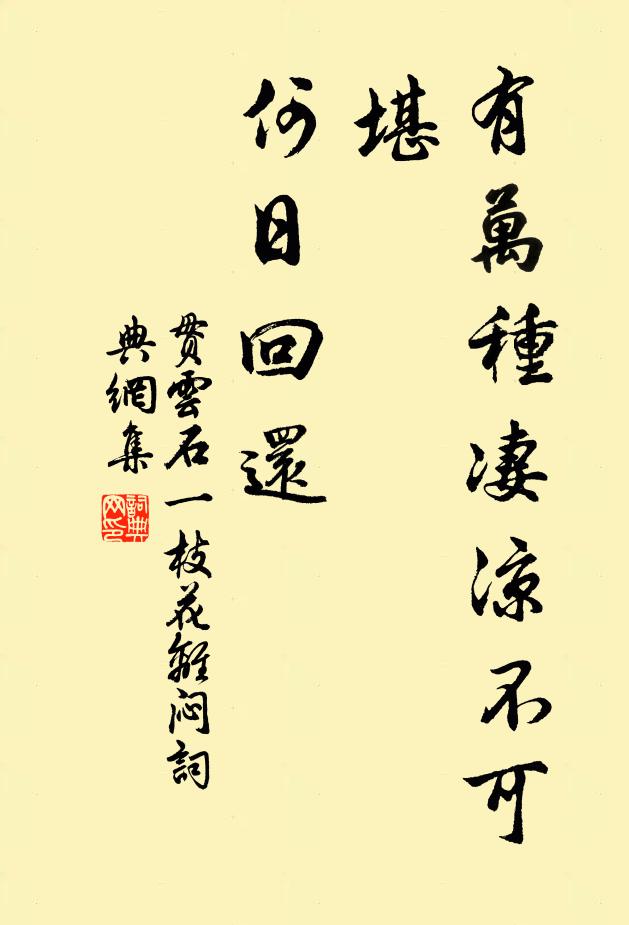 有萬種淒涼不可
堪
何日回還
貫雲石一枝花離闷詞
典網集
詞典
网印